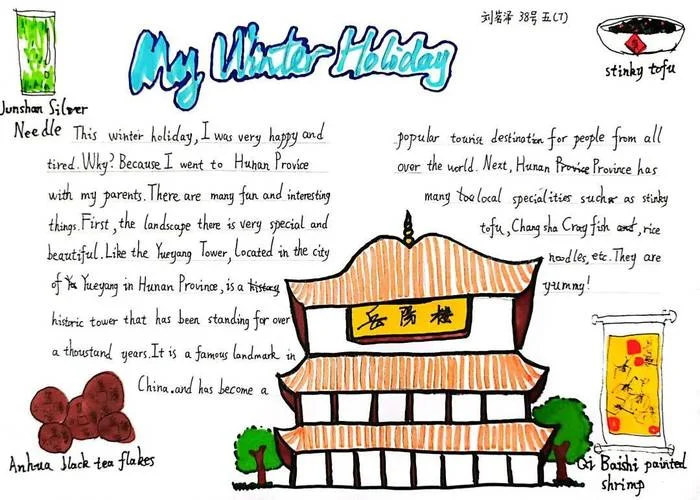 刘若泽 38号 五(7)
My Winter Holiday
stinky tofu
Junshan Silver
Needle
This winter holiday, I was very happy and
tired. Why? Because I went to Hunan Provice
with my parents. There are many fun and interesting
things. First, the landscape there is very special and
beautiful. Like the Yueyang Tower, Located in the city
of Yueyang in Hunan Province, is a
historic tower that has been standing for over
a thoustand years. It is a famous landmark in
China. and has become a
popular tourist destination for people from all
over the world. Next, Hunan Province has
many local specialities such as stinky
tofu, Changsha Crayfish, rice
noodles, etc. They are
yummy!
岳陽楼
Anhua black tea flakes
Qi Baishi painted
shrimp